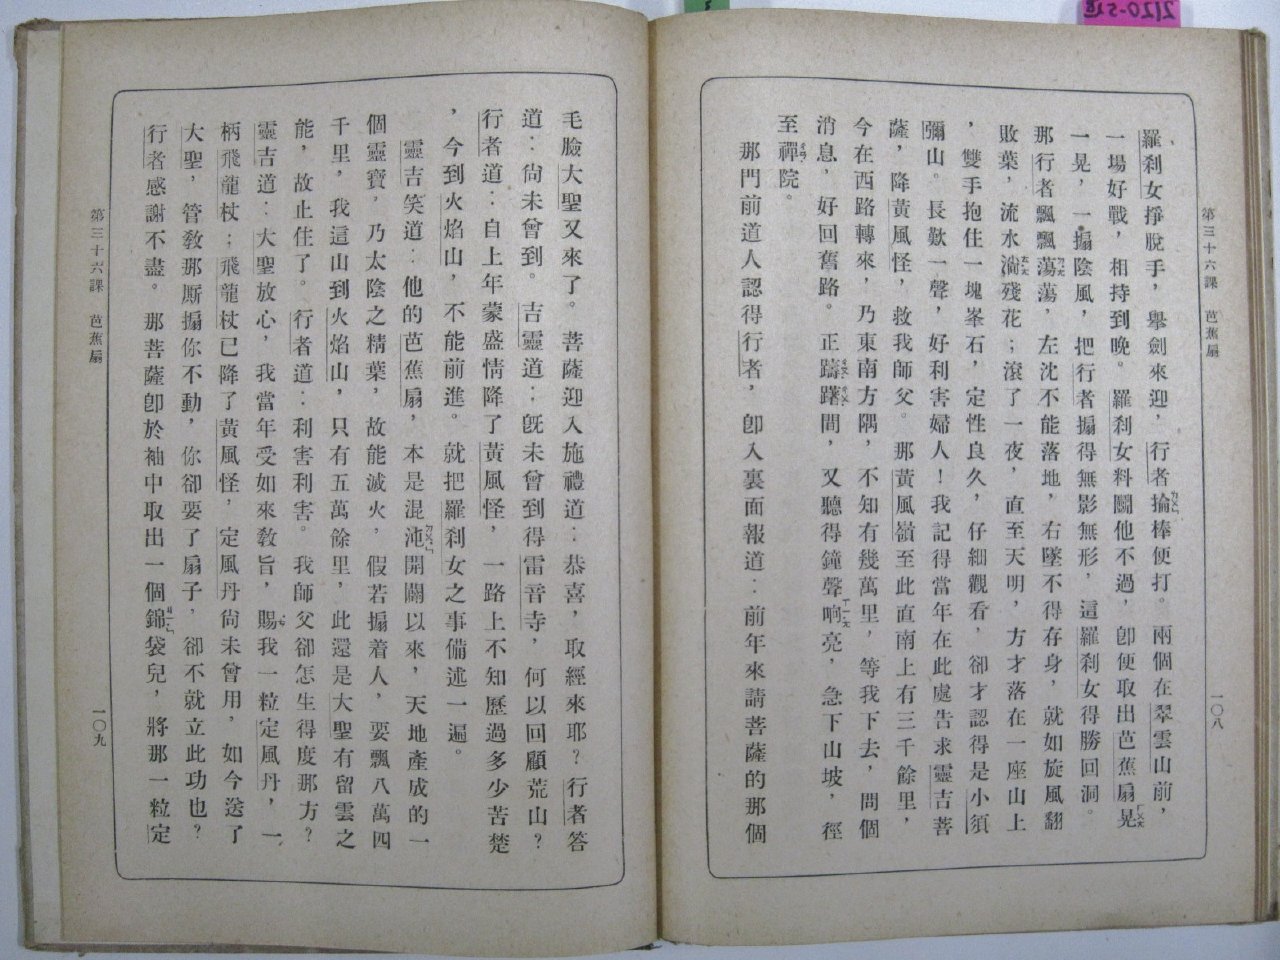 2120-518
第三十六課　芭蕉扇
一〇八
羅刹女掙脫手，舉劍來迎，行者掄棒便打。兩個在翠雲山前，
一場好戰，相持到晚。羅刹女料鬭他不過，卽便取出芭蕉扇晃
一晃，一搧陰風，把行者搧得無影無形，這羅刹女得勝回洞。
那行者飄飄蕩蕩，左沈不能落地，右墜不得存身，就如旋風翻
敗葉，流水淌殘花；滾了一夜，直至天明，方才落在一座山上
，雙手抱住一塊峯石，定性良久，仔細觀看，卻才認得是小須
彌山。長歎一聲，好利害婦人！我記得當年在此處告求靈吉菩
薩，降黃風怪，救我師父。那黃風嶺至此直南上有三千餘里，
今在西路轉來，乃東南方隅，不知有幾萬里，等我下去，問個
消息，好回舊路。正躊躇間，又聽得鐘聲响亮，急下山坡，徑
至禪院。
那門前道人認得行者，卽入裏面報道：前年來請菩薩的那個
毛臉大聖又來了。菩薩迎入施禮道：恭喜，取經來耶？行者答
道：尙未曾到。吉靈道：旣未曾到得雷音寺，何以回顧荒山？
行者道：自上年蒙盛情降了黃風怪，一路上不知歷過多少苦楚
，今到火焰山，不能前進。就把羅刹女之事備述一遍。
靈吉笑道：他的芭蕉扇，本是混沌開闢以來，天地產成的一
個靈寶，乃太陰之精葉，故能滅火，假若搧着人，要飄八萬四
千里，我這山到火焰山，只有五萬餘里，此還是大聖有留雲之
能，故止住了。行者道：利害利害。我師父卻怎生得度那方？
靈吉道：大聖放心，我當年受如來教旨，賜我一粒定風丹，一
柄飛龍杖；飛龍杖已降了黃風怪，定風丹尙未曾用，如今送了
大聖，管敎那厮搧你不動，你卻要了扇子，卻不就立此功也？
行者感謝不盡。那菩薩卽於袖中取出一個錦袋兒，將那一粒定
第三十六課　芭蕉扇
一〇九